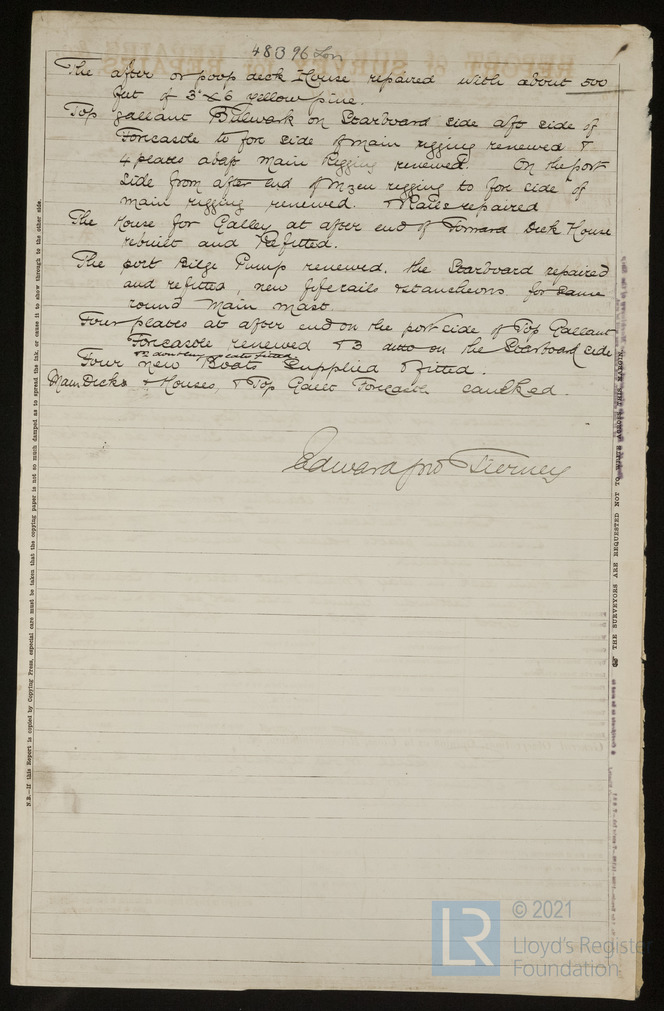 48396 Lon
The after or poop deck House repaired with about 500
feet of 3" x 6" yellow pine.
Top gallant Bulwark on Starboard side aft side of
Forecastle to fore side of main rigging renewed &
4 plates abaft Main Rigging renewed. On the port
side from after end of Mzen rigging to fore side of
main rigging renewed. & Rails repaired
The House for Galley at after end of Forward Deck House
rebuilt and Refitted.
The port Bilge Pump renewed, the Starboard repaired
and refitted, new fife rails & stancheons for same
round Main Mast.
Four plates at after end on the port side of Top Gallant
Forecastle renewed & 3 ditto on the Starboard side
& 2 doubling plates fitted
Four new Boats Supplied & fitted.
Main Decks & Houses, & Top Gallt Forecastle caulked.
Edward Jno Tierney
N.B.—If this Report is copied by Copying Press, especial care must be taken that the copying paper is not so much damped as to spread the ink, or cause it to show through to the other side.
THE SURVEYORS ARE REQUESTED NOT TO WRITE ACROSS THIS MARGIN
LR
© 2021
Lloyd's Register
Foundation